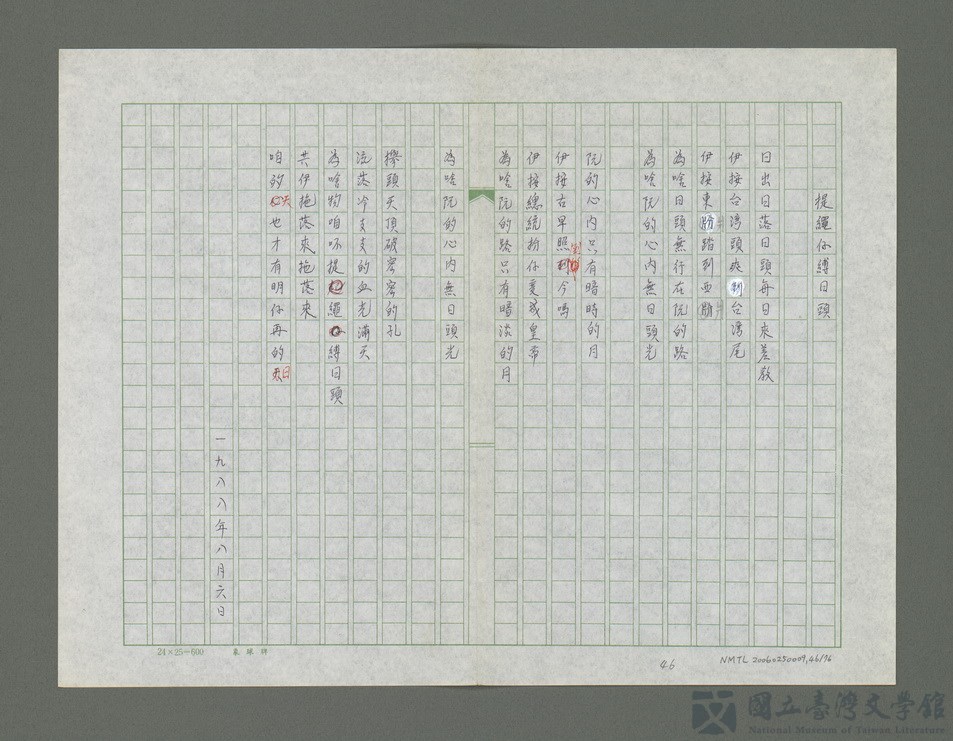 提繩仔縛日頭
日出日落日頭每日來差教
伊按台灣頭爽到台灣尾
伊按東勝踏到西勝
為啥日頭無行在阮的路
為啥阮的心內無日頭光
阮的心內只有暗時的月
伊按古早照到今嗎
伊按總統扮仔變成皇帝
為啥阮的路只有暗淡的月
為啥阮的心內無日頭光
攑頭天頂破密密的孔
流落冷支支的血光滿天
為啥物咱呣提繩縛日頭
共伊拖落來拖落來
咱的天也才有明仔再的日
一九八八年八月六日
24×25=600
46
NMTL 20060250009,46/76
國立臺灣文學館
National Museum of Taiwan Literature